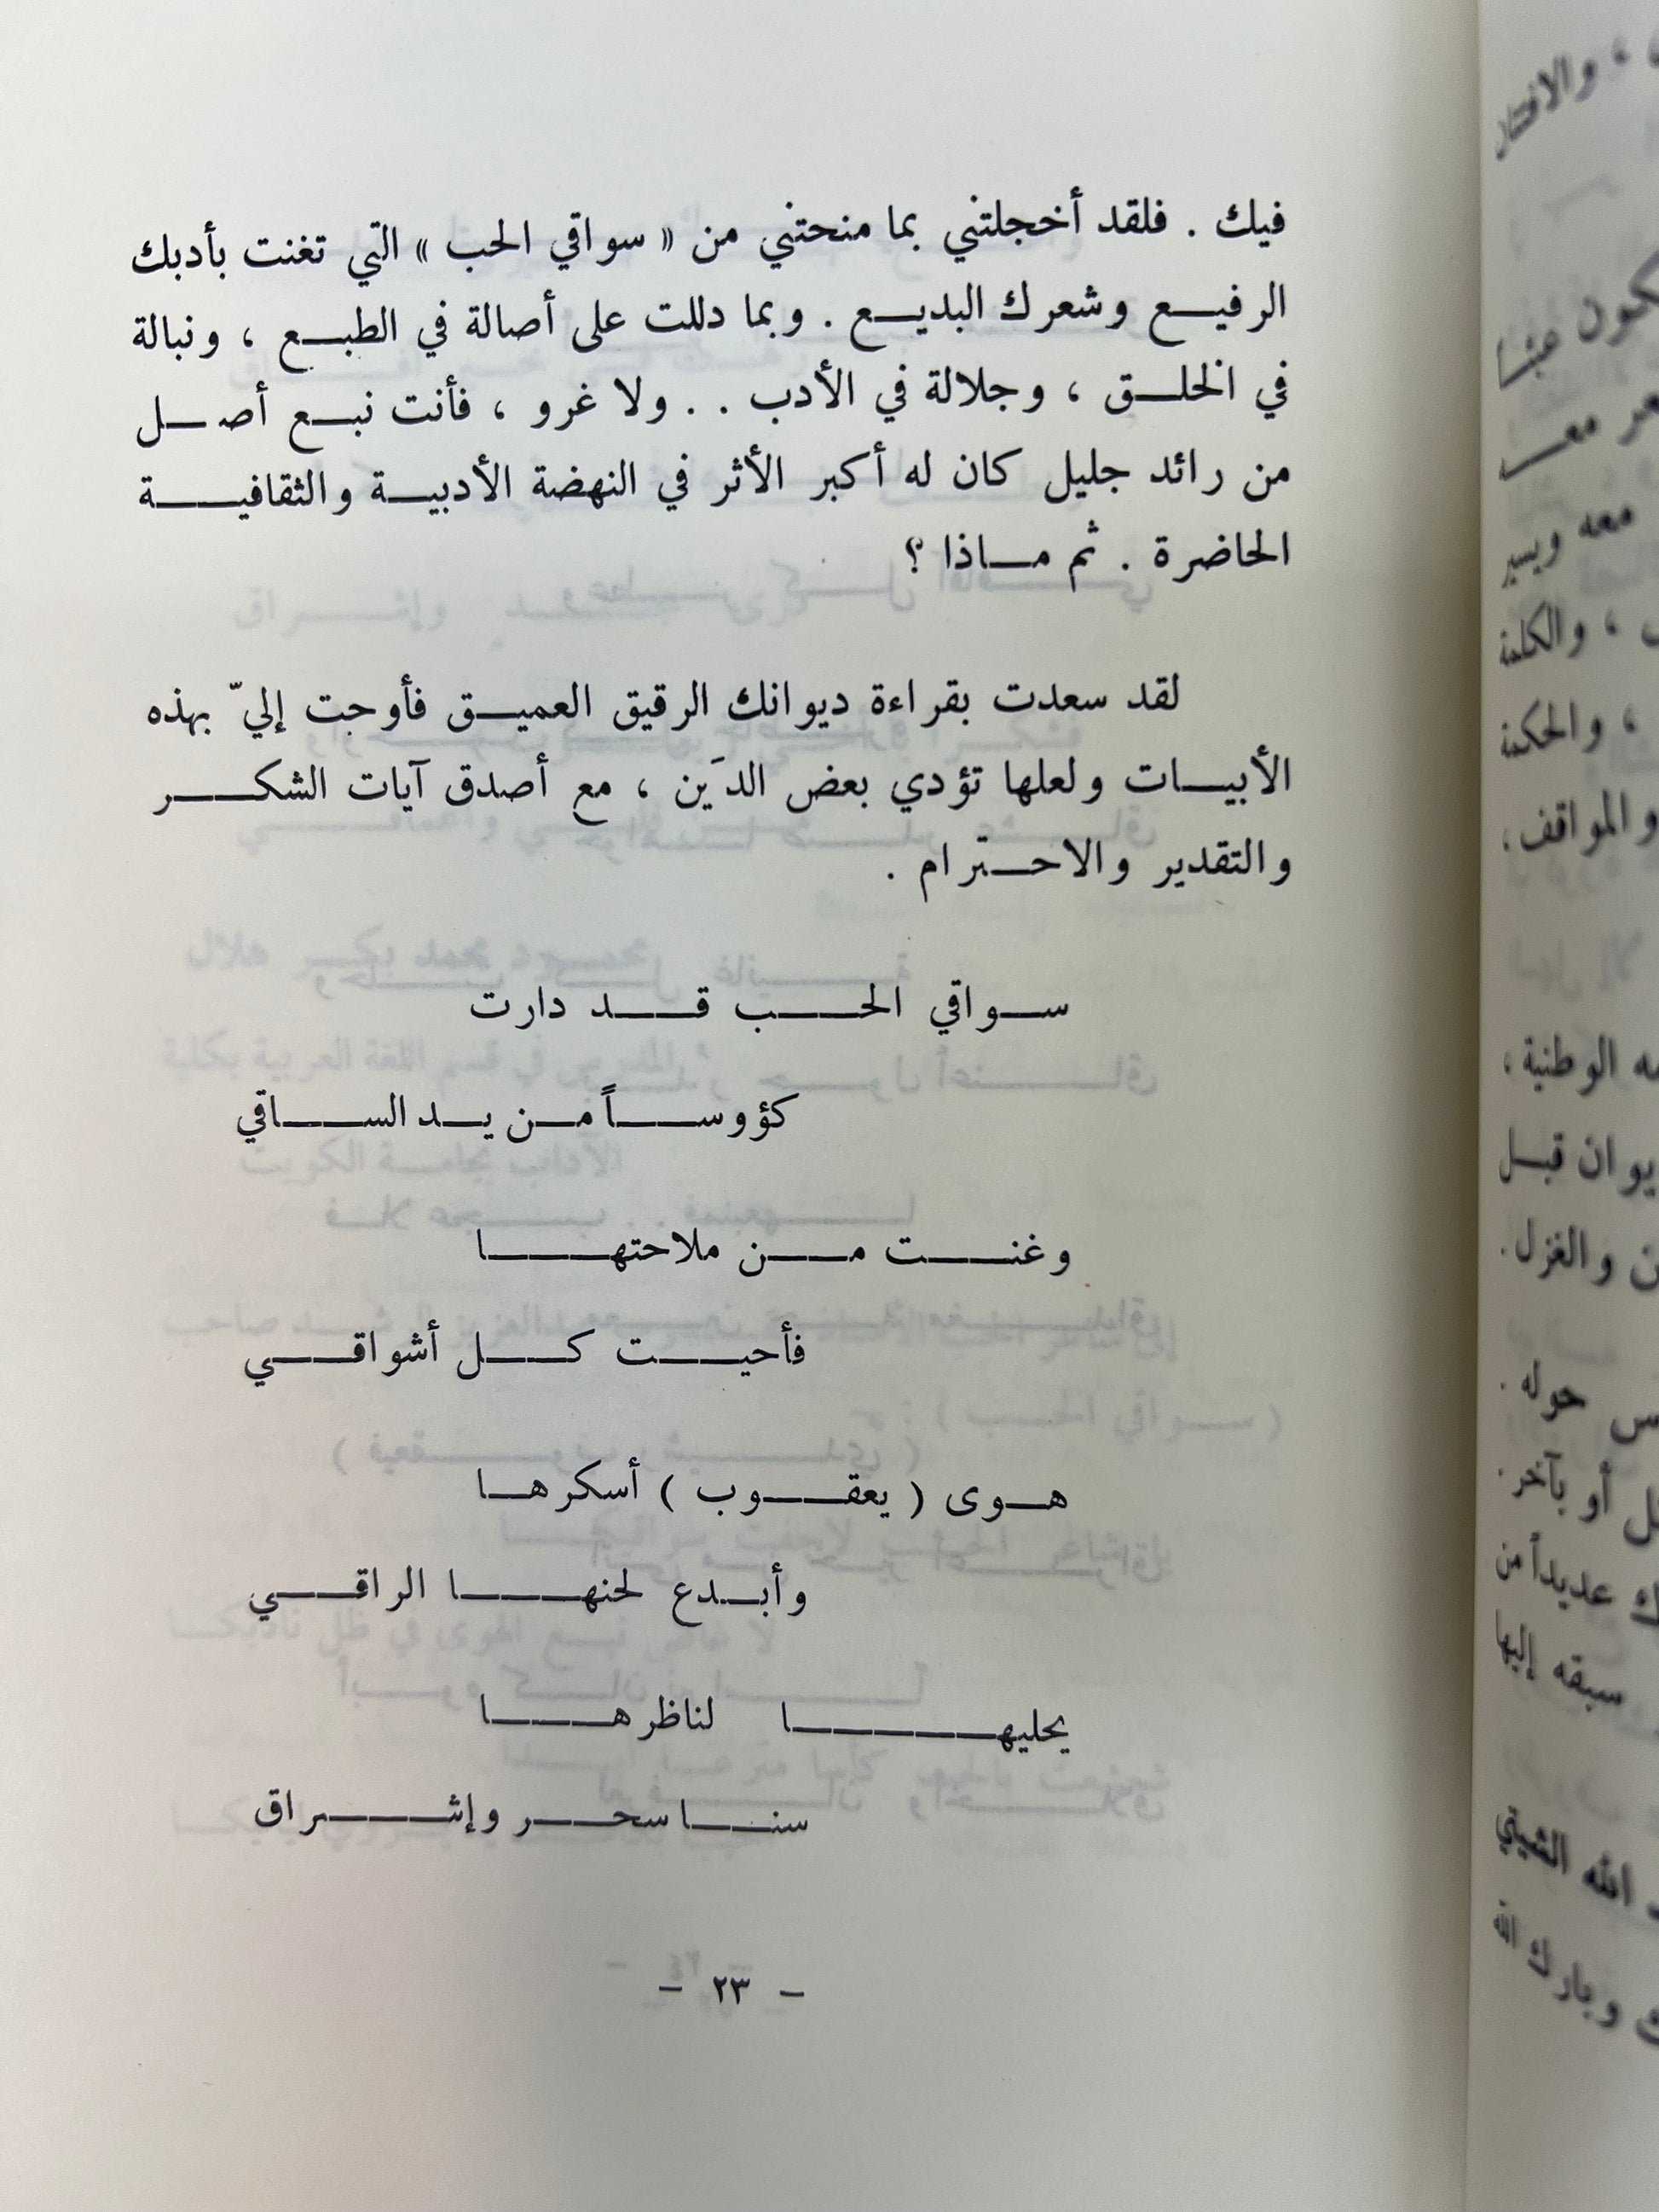 فيك . فلقد أخجلتني بما منحتني من « سواقي الحب » التي تغنت بأدبك
الرفيع وشعرك البديع . وبما دللت على أصالة في الطبع ، ونبالة
في الخلق ، وجلالة في الأدب . . ولا غرو ، فأنت نبع أصل
من رائد جليل كان له أكبر الأثر في النهضة الأدبية والثقافية
الحاضرة . ثم ماذا ؟
لقد سعدت بقراءة ديوانك الرقيق العميق فأوحت إليّ بهذه
الأبيات ولعلها تؤدي بعض الدَين ، مع أصدق آيات الشكر
والتقدير والاحترام .
سواقي الحب قد دارت
كؤوساً من يد الساقي
وغنت من ملاحتها
فأحيت كل أشواقي
هوى ( يعقوب ) أسكرها
وأبدع لحنها الراقي
يحليها لناظرها
سنا سحر وإشراق
- ٢٣ -
، والافتتان
يكون عبثا
معه ويسير
، والكلمة
، والحكمة
والمواقف ،
الوطنية ،
قبل
والغزل .
حوله .
أو بآخر .
عديداً من
سبقه إليها
الله الشيتي
وبارك الله